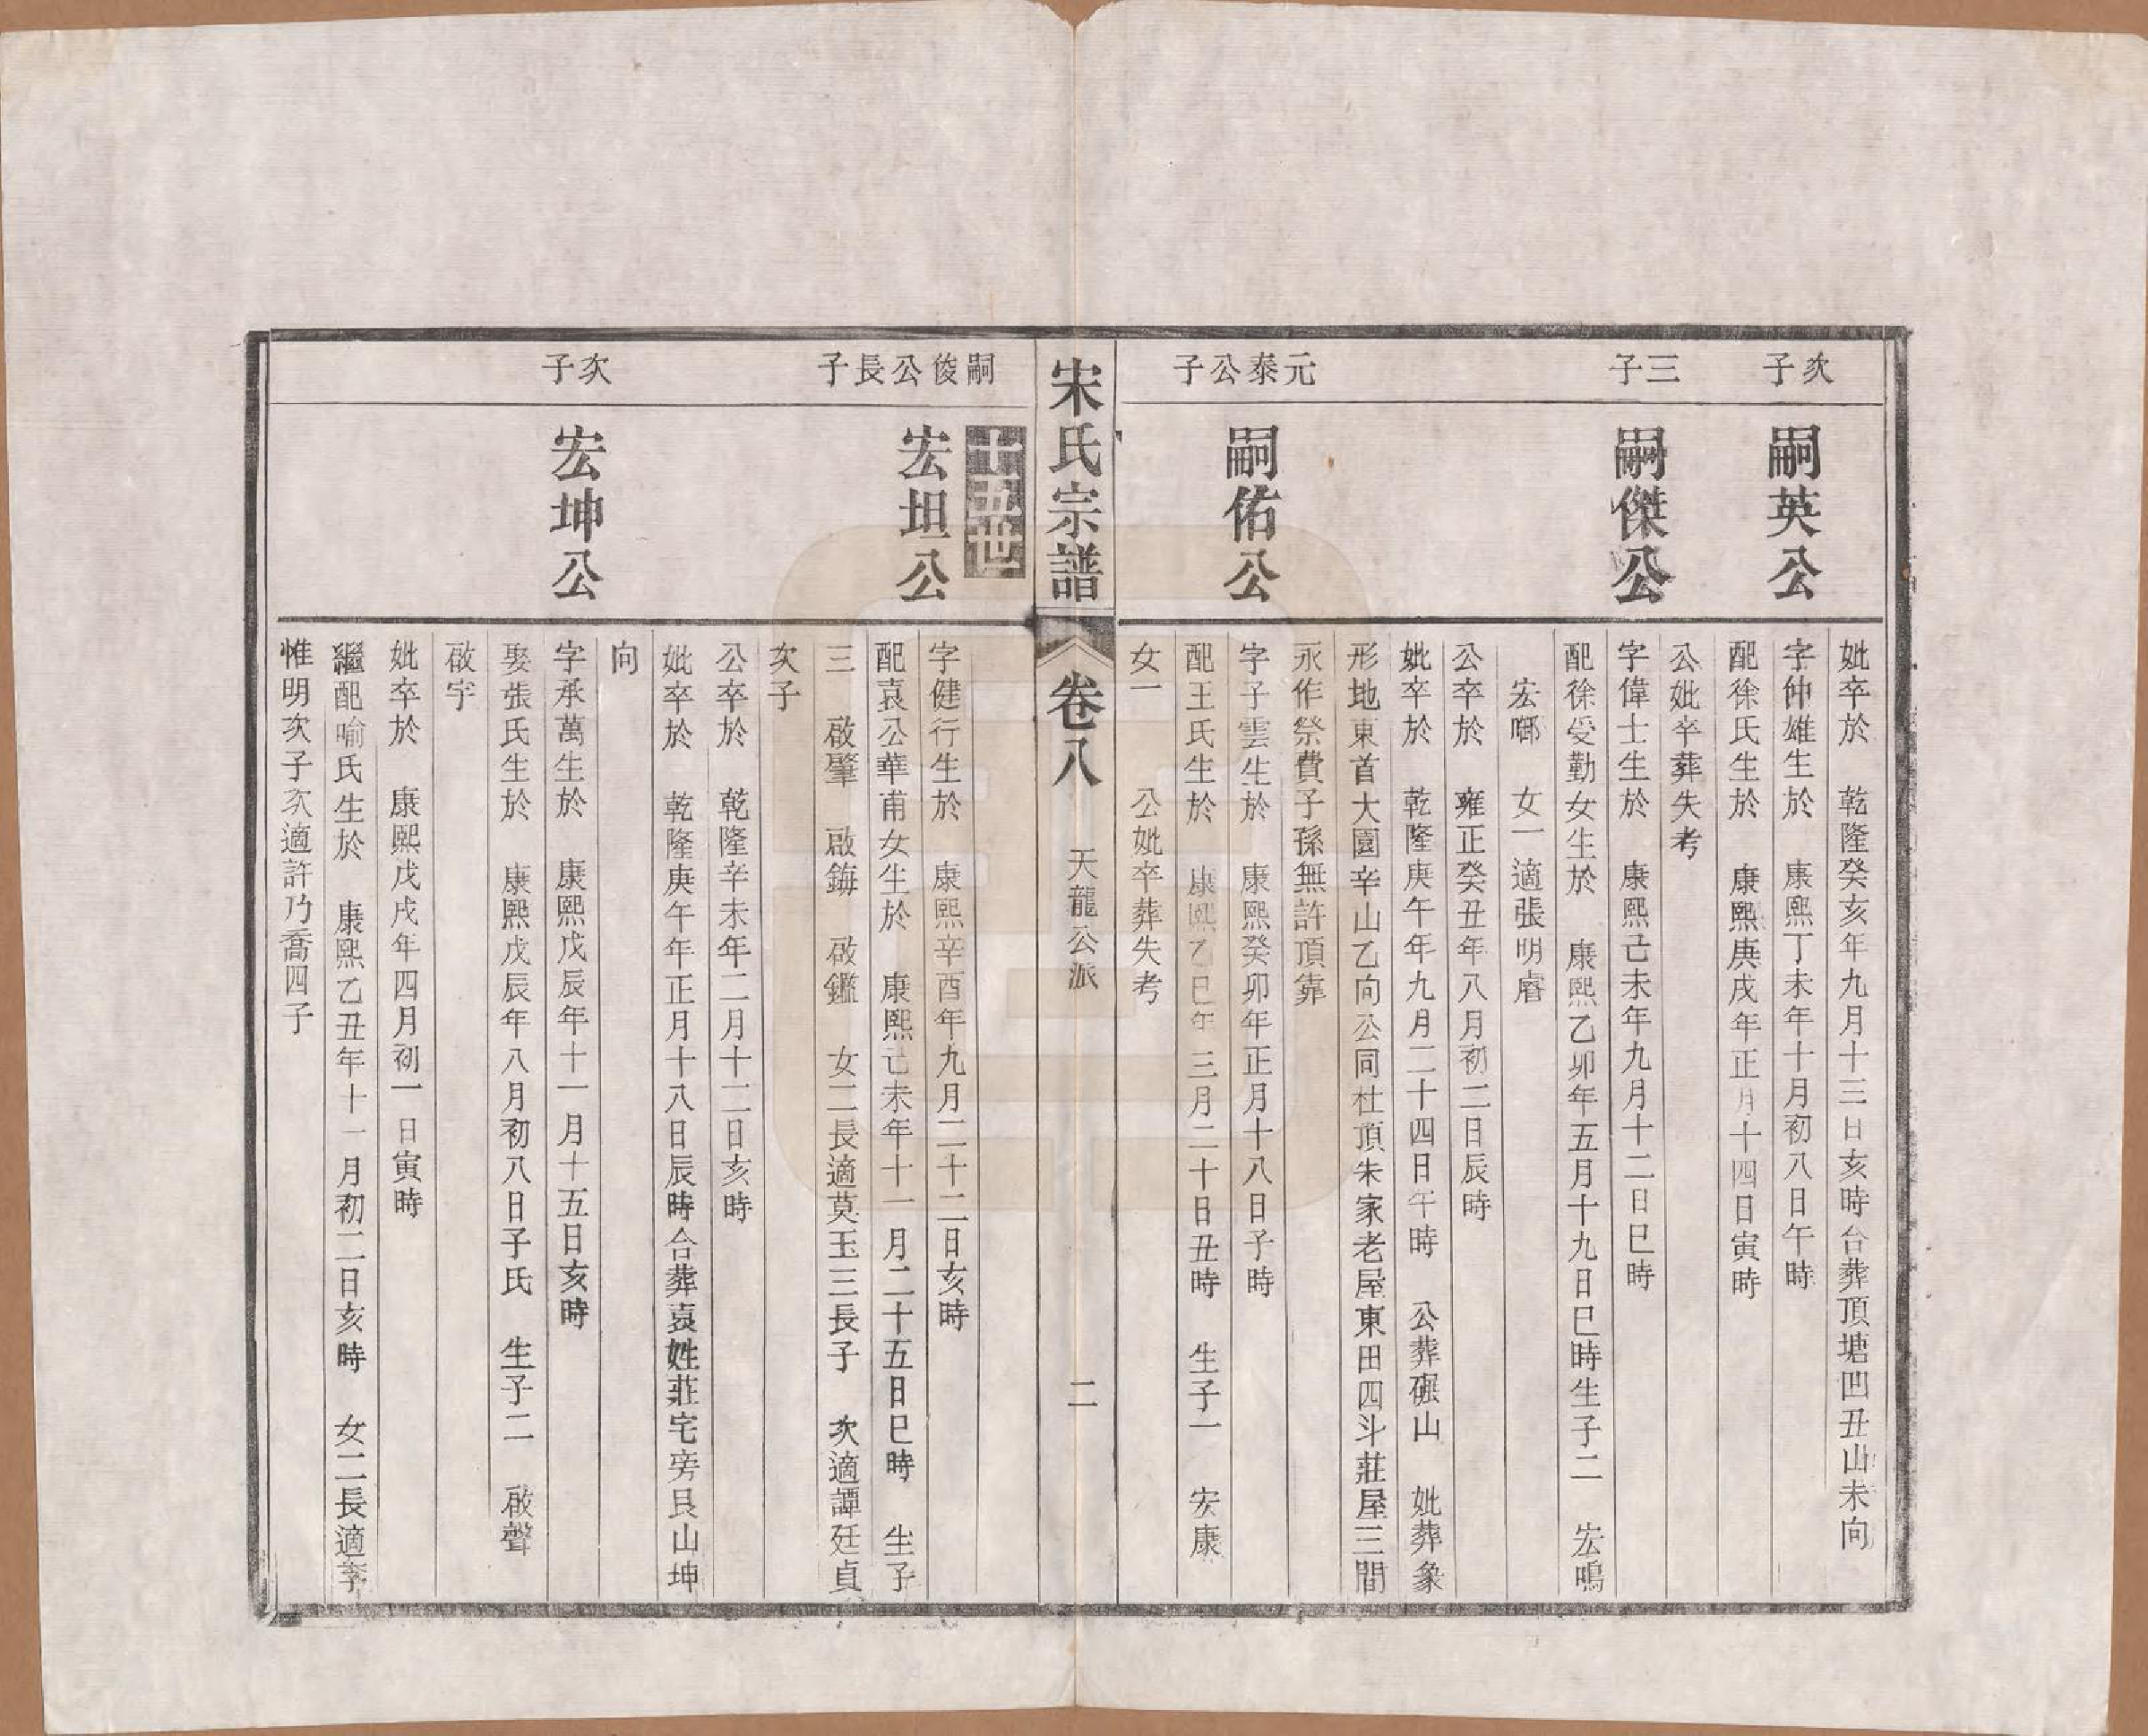 妣卒於　乾隆癸亥年九月十三日亥時合葬頂塘凹丑山未向
次子
嗣英公
字仲雄生於　康熙丁未年十月初八日午時
配徐氏生於　康熙庚戌年正月十四日寅時
公妣卒葬失考
三子
嗣傑公
字偉士生於　康熙己未年九月十二日巳時
配徐受勤女生於　康熙乙卯年五月十九日巳時生子二　宏鳴
宏啷　女一適張明睿
公卒於　雍正癸丑年八月初二日辰時
妣卒於　乾隆庚午年九月二十四日午時　公葬碾山　妣葬象
形地東首大園辛山乙向公同杜頂朱家老屋東田四斗莊屋三間
永作祭費子孫無許頂靠
元泰公子
嗣佑公
字子雲生於　康熙癸卯年正月十八日子時
配王氏生於　康熙乙巳年三月二十日丑時　生子一　安康
女一　公妣卒葬失考
宋氏宗譜　卷八　天龍公派　二
十五世
嗣俊公長子
宏坦公
字健行生於　康熙辛酉年九月二十二日亥時
配袁公華甫女生於　康熙己未年十一月二十五日巳時　生子
三　啟肇　啟鋂　啟鑑　女二長適莫玉三長子　次適譚廷貞
次子
公卒於　乾隆辛未年二月十二日亥時
妣卒於　乾隆庚午年正月十八日辰時合葬袁姓莊宅旁艮山坤
向
次子
宏坤公
字承萬生於　康熙戊辰年十一月十五日亥時
娶張氏生於　康熙戊辰年八月初八日子氏　生子二　啟聲
啟宇
妣卒於　康熙戊戌年四月初一日寅時
繼配喻氏生於　康熙乙丑年十一月初二日亥時　女二長適李
惟明次子次適許乃喬四子